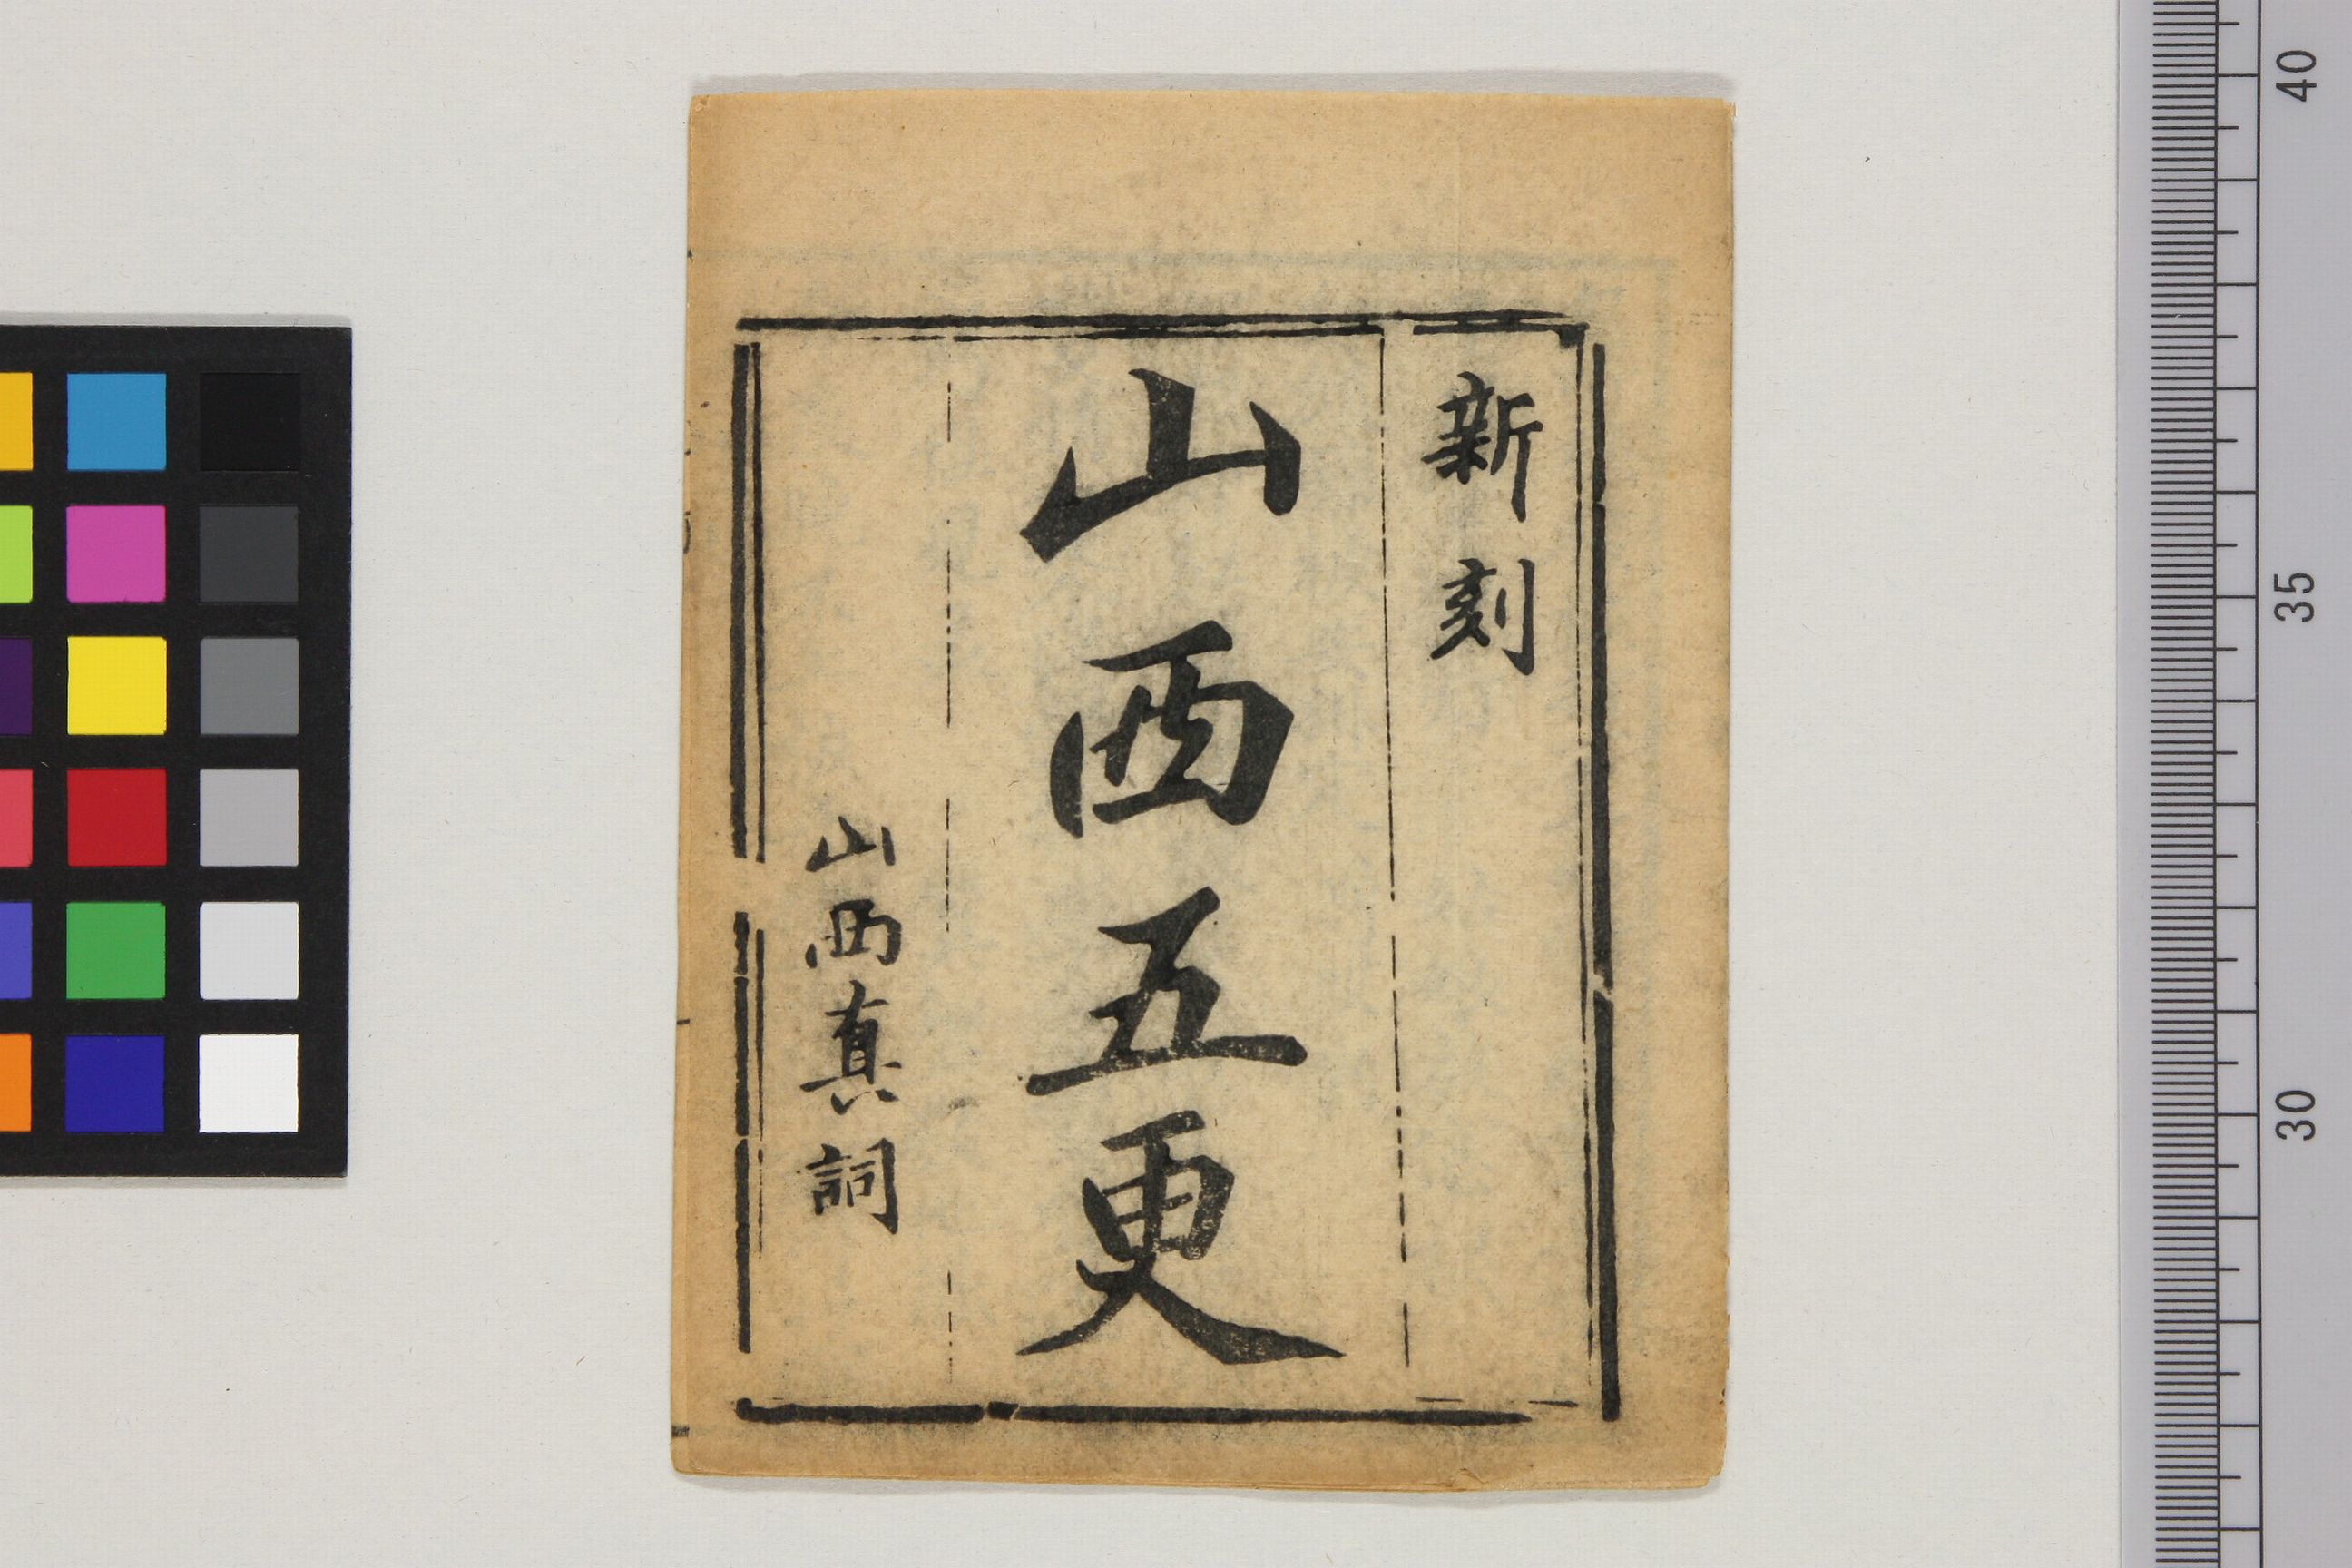 新刻
山西五更
山西真詞
40
35
30